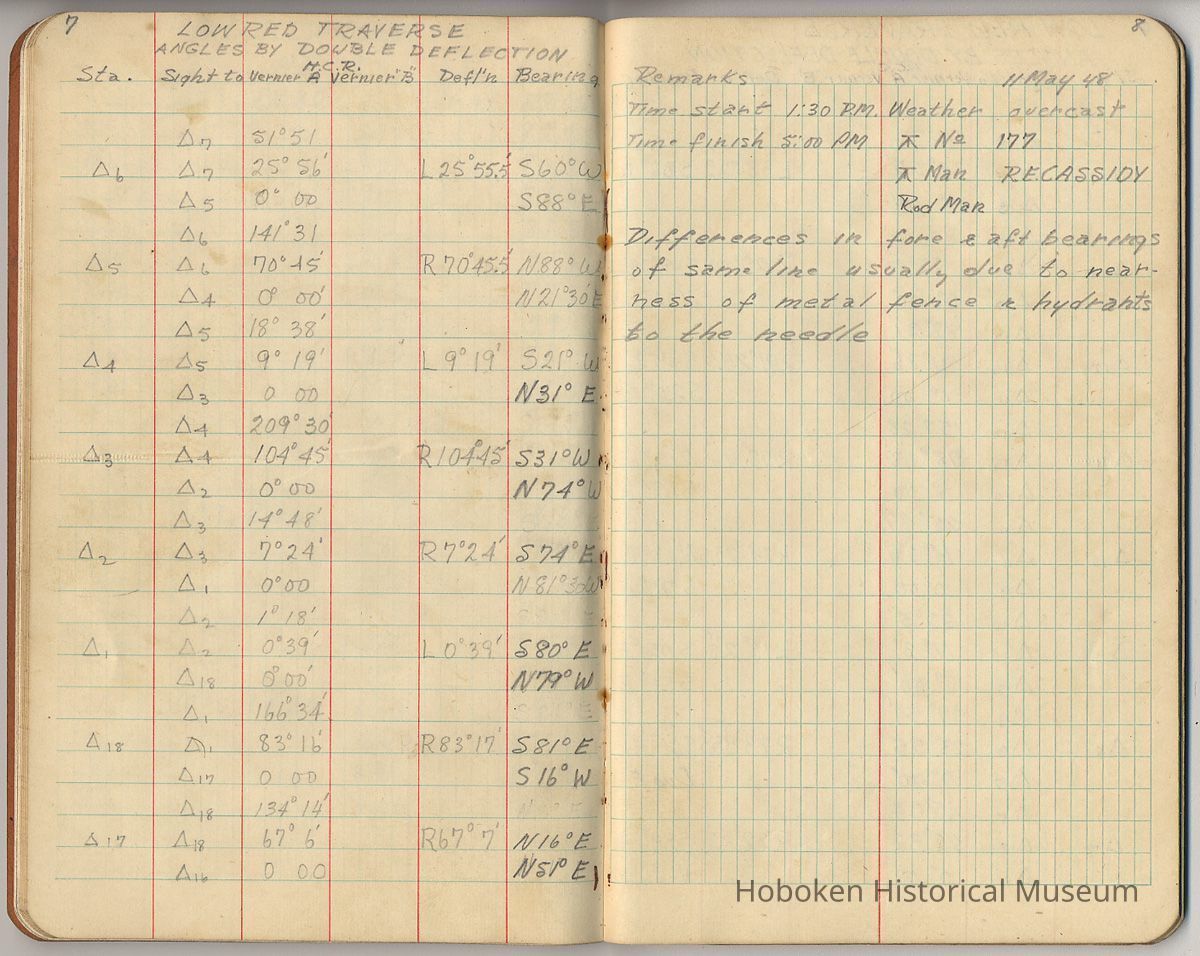 7
LOW RED TRAVERSE
ANGLES BY DOUBLE DEFLECTION
H.C.R.
Sta. Sight to Vernier A Vernier B Defl'n Bearing
Δ7 51°51
Δ6 Δ7 25° 56' L 25°55.5' S60°W
Δ5 0° 00 S88°E
Δ6 141°31
Δ5 Δ6 70°45' R 70°45.5' N88°W
Δ4 0° 00' N21°30'E
Δ5 18° 38'
Δ4 Δ5 9° 19' L 9°19' S21° W
Δ3 0 00 N31° E
Δ4 209°30'
Δ3 Δ4 104°45' R104°45' S31°W
Δ2 0°00 N74°W
Δ3 14°48'
Δ2 Δ3 7°24' R7°24' S74°E
Δ1 0°00 N81°30W
Δ2 1° 18'
Δ1 Δ2 0°39' L 0°39' S80° E
Δ18 0°00' N79° W
Δ1 166°34'
Δ18 Δ1 83°16' R83°17' S81° E
Δ17 0 00 S16° W
Δ18 134°14'
Δ17 Δ18 67° 6' R67°7' N16°E
Δ16 0 00 N51°E
8
Remarks 11 May 48
Time start 1:30 P.M. Weather overcast
Time finish 5:00 PM ⊼ No 177
⊼ Man R.E.CASSIDY
Rod Man
Differences in fore & aft bearings
of same line usually due to near-
ness of metal fence & hydrants
to the needle
Hoboken Historical Museum